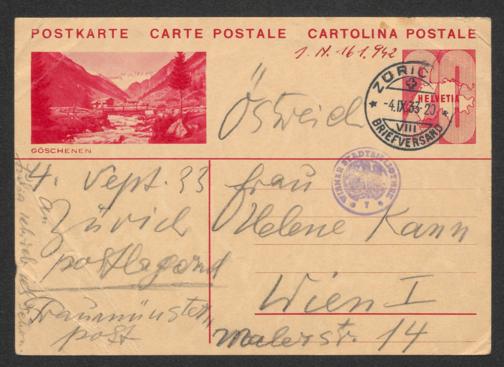 POSTKARTE CARTE POSTALE CARTOLINA POSTALE
1. N. 161.942
20
HELVETIA
ZÜRICH
-4.IX.33-20
VIII
BRIEFVERSAND
GÖSCHENEN
Östreich
WIENER STADTBIBLIOTHEK
4. Sept. 33
an
Zürich
postlagernd
Fraumünster
post
Frau
Helene Kann
Wien I
Malerstr. 14